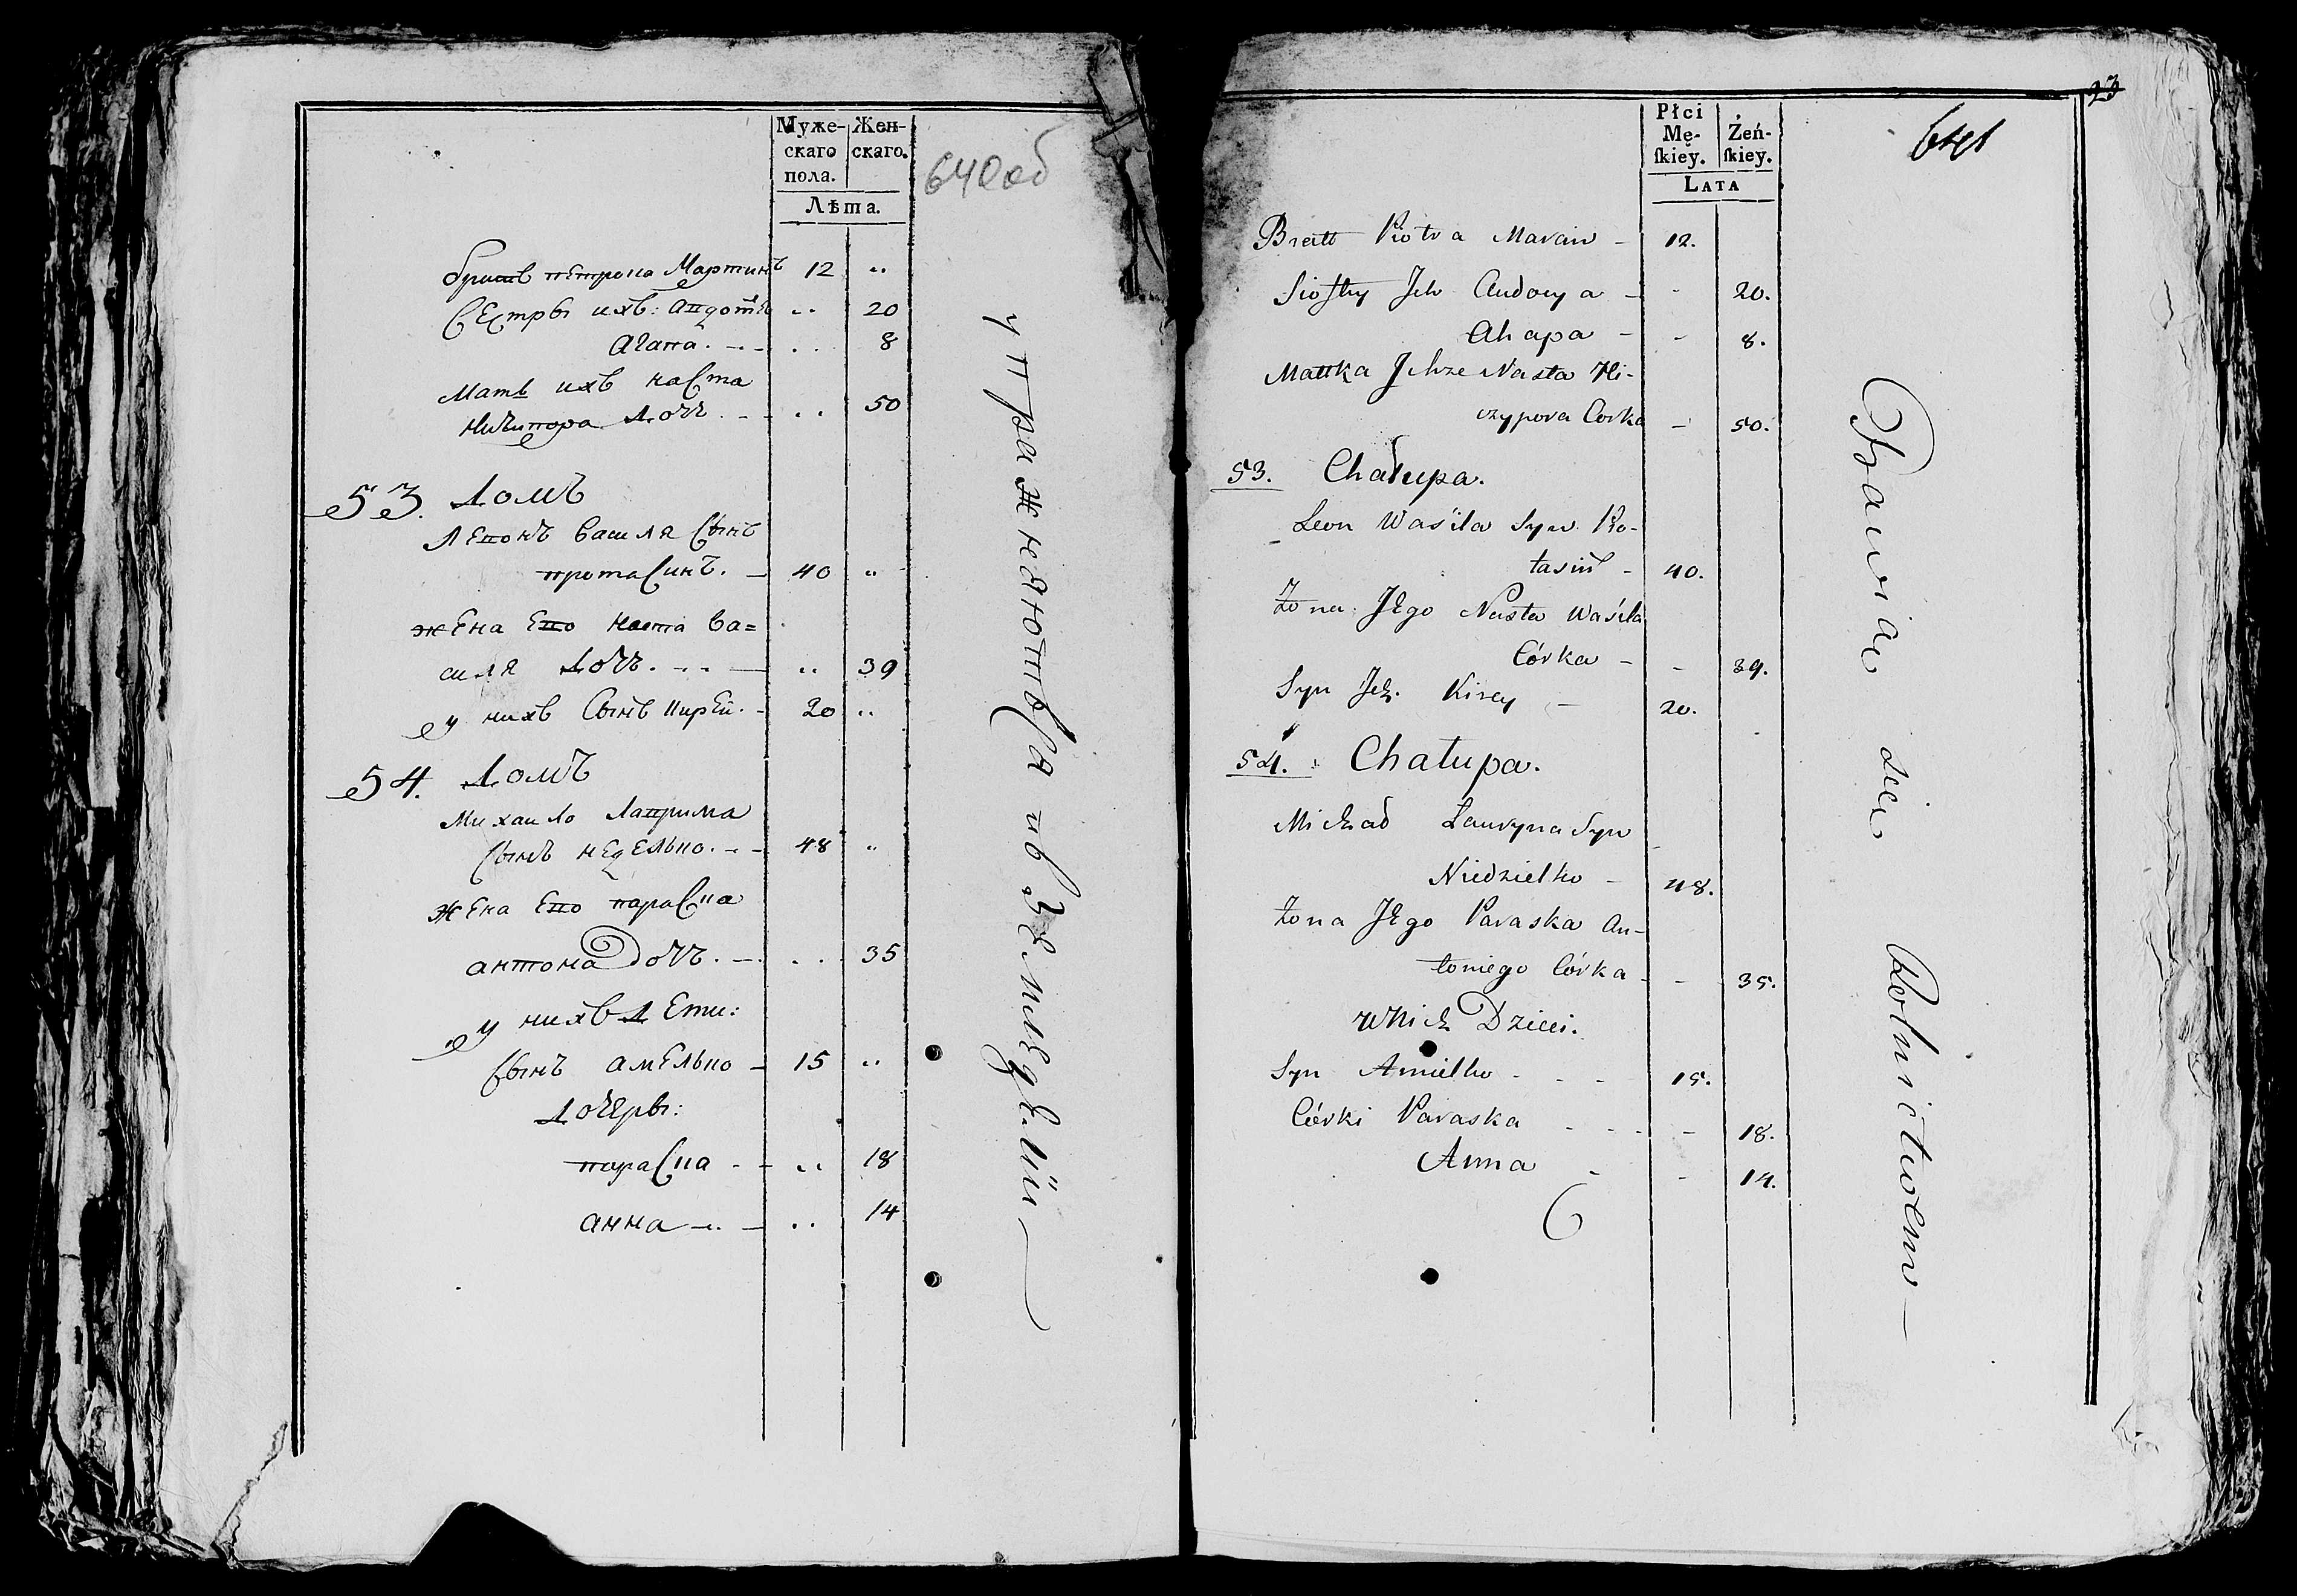 Муже-
скаго
пола.
Жен-
скаго.
Лѣта.
640об
братъ петрона Мартинъ 12 "
Сестры ихъ: авдотья " 20
Агапа. " 8
Мать ихъ наста
Ничипора дочь " 50
53. Домъ
Левонъ василя Сынъ
протасинъ. 40 "
жена Его наста ва=
силя дочь. " 39
у нихъ Сынъ кирей. 20 "
54. Домъ
Михаило лаврина
Сынъ неделько. 48 "
жена Его параска
антона дочь. " 35
у нихъ дети:
Сынъ амелько 15 "
дочеры:
параска " 18
анна " 14
упражняютъся въ земледелїи
23
Płci
Mę-
ſkiey.
Żeń-
ſkiey.
LATA
641
Bratt Piotra Marcin - 12.
Siostry Ich Audocya - - 20.
Ahapa - - 8.
Mattka Ichże Nasta Ni-
czypora Corka - 50.
53. Chałupa.
Leon Waśila Syn Pro-
tasin - 40.
Żona Jego Nasta Waśila
Córka - - 39.
Syn Ich Kirey - 20.
54. Chałupa.
Michał Lauryna Syn
Niedzielko - 48.
Żona Jego Paraska An-
toniego Córka - - 35.
u Nich Dzieci.
Syn Amielko - - - 15.
Córki Paraska - - - - 18.
Anna - - 14.
Bawiąc się Rolnictwem